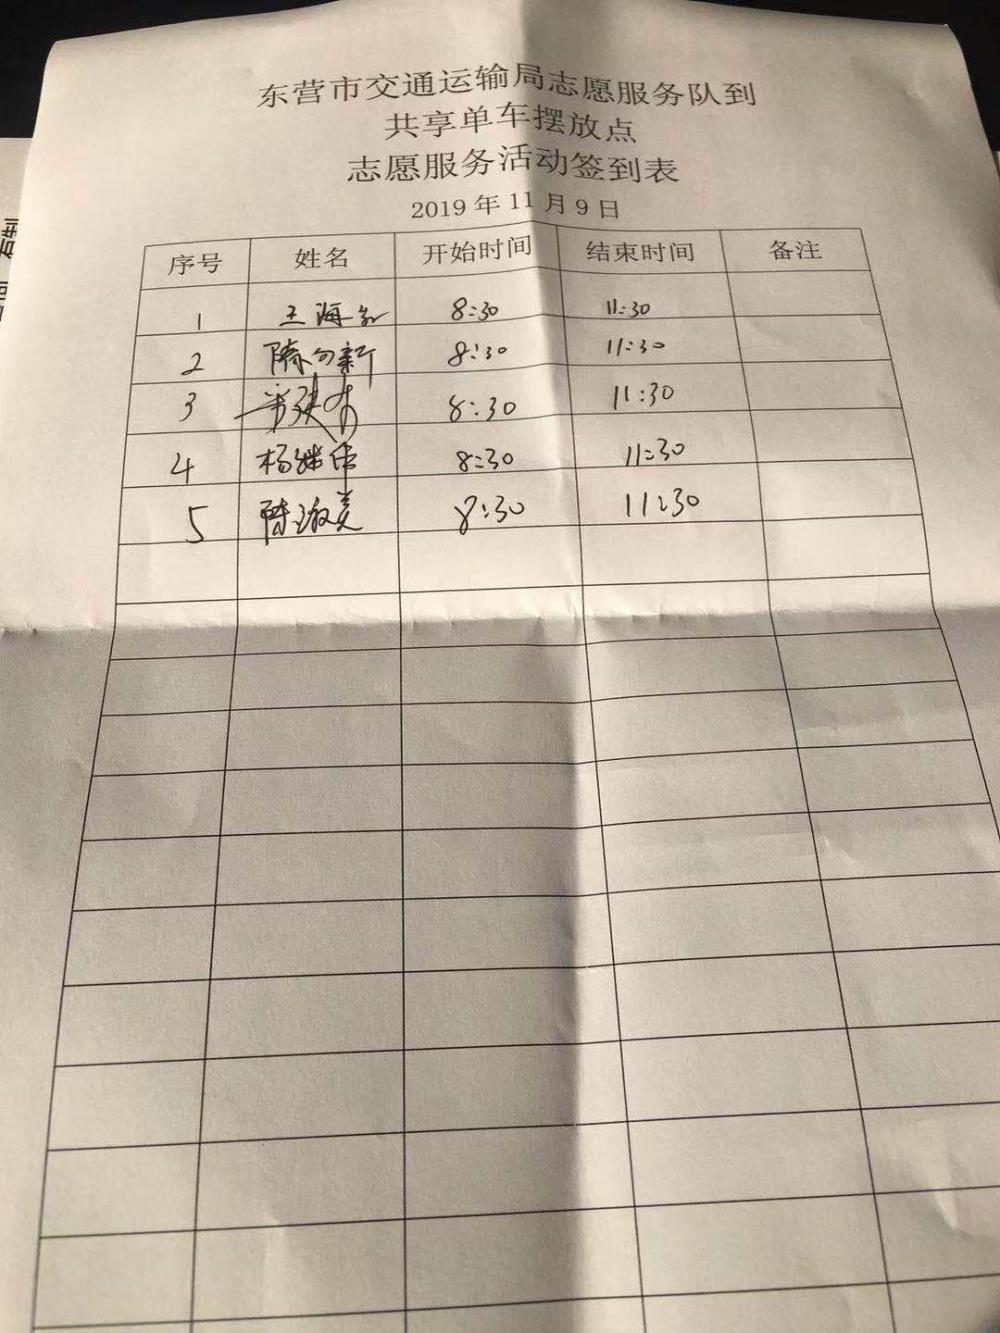 东营市交通运输局志愿服务队到
共享单车摆放点
志愿服务活动签到表
2019年11月9日
序号 姓名 开始时间 结束时间 备注
1 王海 8:30 11:30
2 陈向新 8:30 11:30
3 8:30 11:30
4 杨继伟 8:30 11:30
5 陈淑美 8:30 11:30